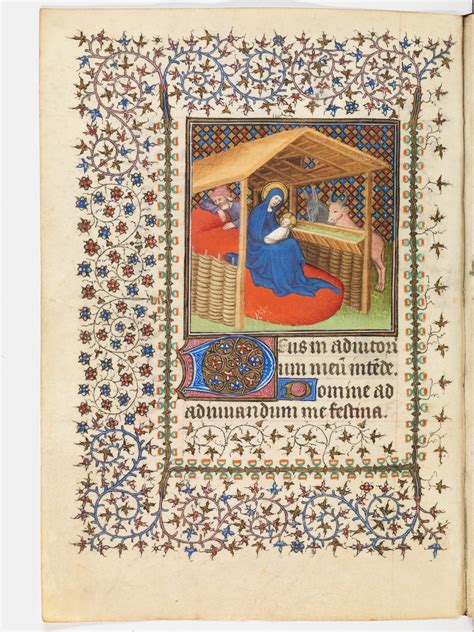 Deus in adiutori
um meū intēde.
Domine ad
adiuvandum me festina.